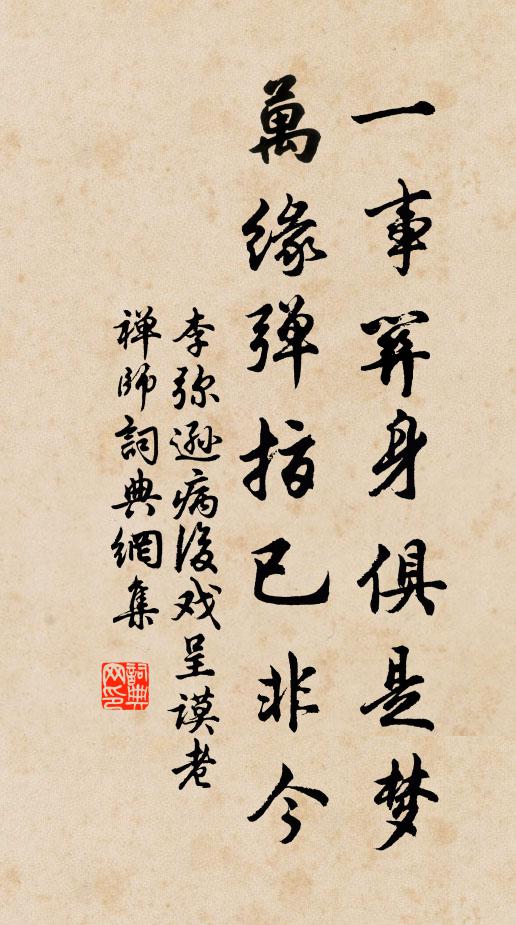 一事関身俱是梦
萬緣弹指已非今
李弥遜病後戏呈謨老
禅師詞典網集
詞典
网印